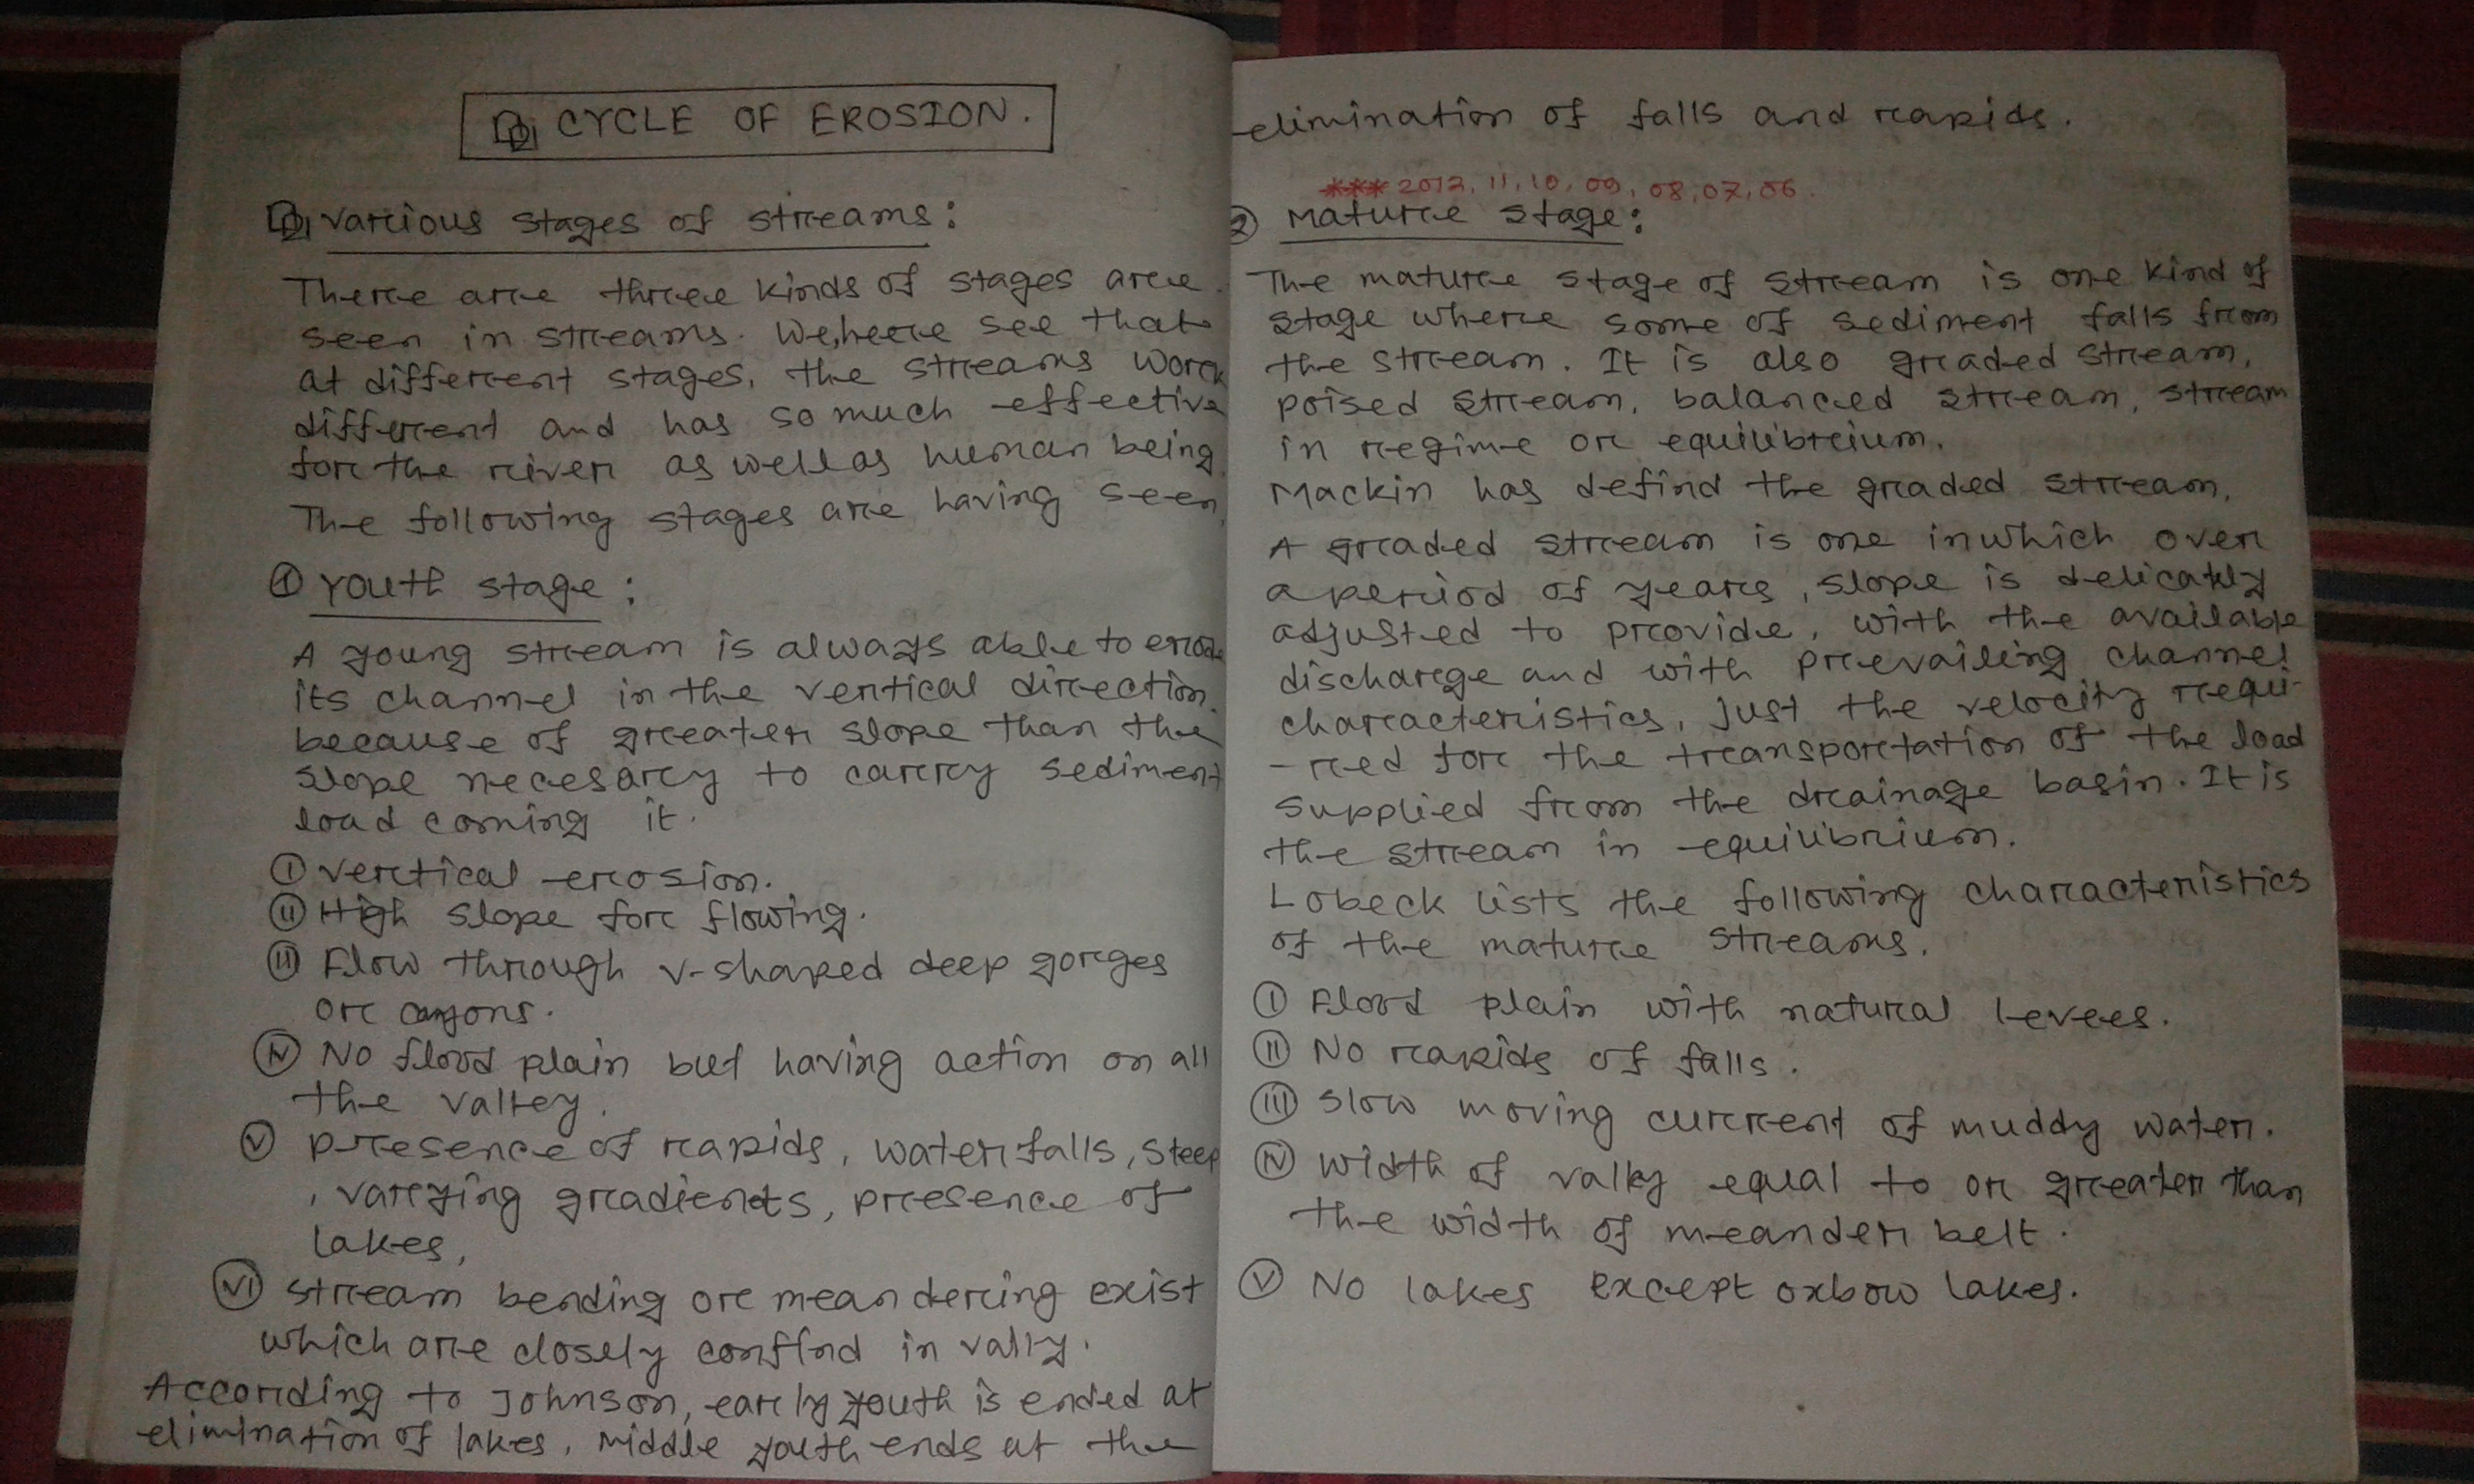 CYCLE OF EROSION.
Various stages of streams:
There are three kinds of stages are
seen in streams. We, here see that
at different stages, the streams work
different and has so much effective
for the river as well as human being.
The following stages are having seen,
① Youth stage:
A young stream is always able to erode
its channel in the vertical direction.
because of greater slope than the
slope necesary to carry sediment
load coming it.
① Vertical erosion.
② High slope for flowing.
③ Flow through v-shaped deep gorges
or canyons.
Ⓘⓥ No flood plain but having action on all
the valley.
Ⓥ presence of rapids, water falls, steep
, varying gradients, presence of
lakes,
ⓋⒾ stream bending or meandering exist
which are closely confind in vally.
According to Johnson, early youth is ended at
elimination of lakes, Middle youth ends at the
elimination of falls and rapids.
*** 2012, 11, 10, 09, 08, 07, 06.
② Mature stage:
The mature stage of stream is one kind of
stage where some of sediment falls from
the stream. It is also graded stream,
poised stream, balanced stream, stream
in regime or equilibrium.
Mackin has defind the graded stream,
A graded stream is one in which over
a period of years, slope is delicatly
adjusted to provide, with the available
discharge and with prevailing channel
characteristics, just the velocity requi-
-red for the transportation of the load
supplied from the drainage basin. It is
the stream in equilibrium.
Lobeck lists the following characteristics
of the mature streams.
Ⓘ Flood plain with natural levees.
ⒾⒾ No rapids of falls.
ⒾⒾⒾ Slow moving current of muddy water.
ⒾⓋ Width of vally equal to or greater than
the width of meander belt.
Ⓥ No lakes except oxbow lakes.